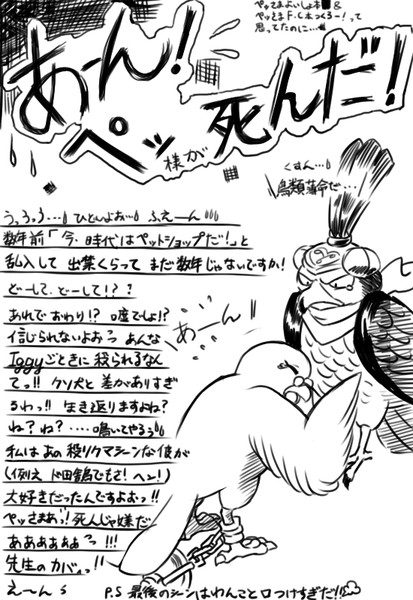 ペッさまよいしょ本■&
ペッさまF.C.本つくろー!って
思ってたのに…
あーん!
ペッ様が死んだ!
くすん…
鳥類薄命だ…
うっうっう…ひどいよお…ふえーん
数年前「今、時代はペットショップだ!」と
乱入して出禁くらってまだ数年じゃないですか!
どーして、どーして!??
あれでおわり!?嘘でしょ!?
信じられないよおっあんな
Iggyごときに殺られるなん
てっ!!クソ犬と差がありすぎ
るわっ!!生き返りますよね?
ね?ね?……鳴いてやるぅ
私はあの殺りクマシーンな彼が
(例え ド田鴫でもさ!ヘン!)
大好きだったんですよおっ!!
ペッさまあっ!死んじゃ嫌だ
ああああああっ!!!
先生のカバぁっ!!
えーん
あーん
P.S 最後のシーンはわんこと口つけすぎだ!!